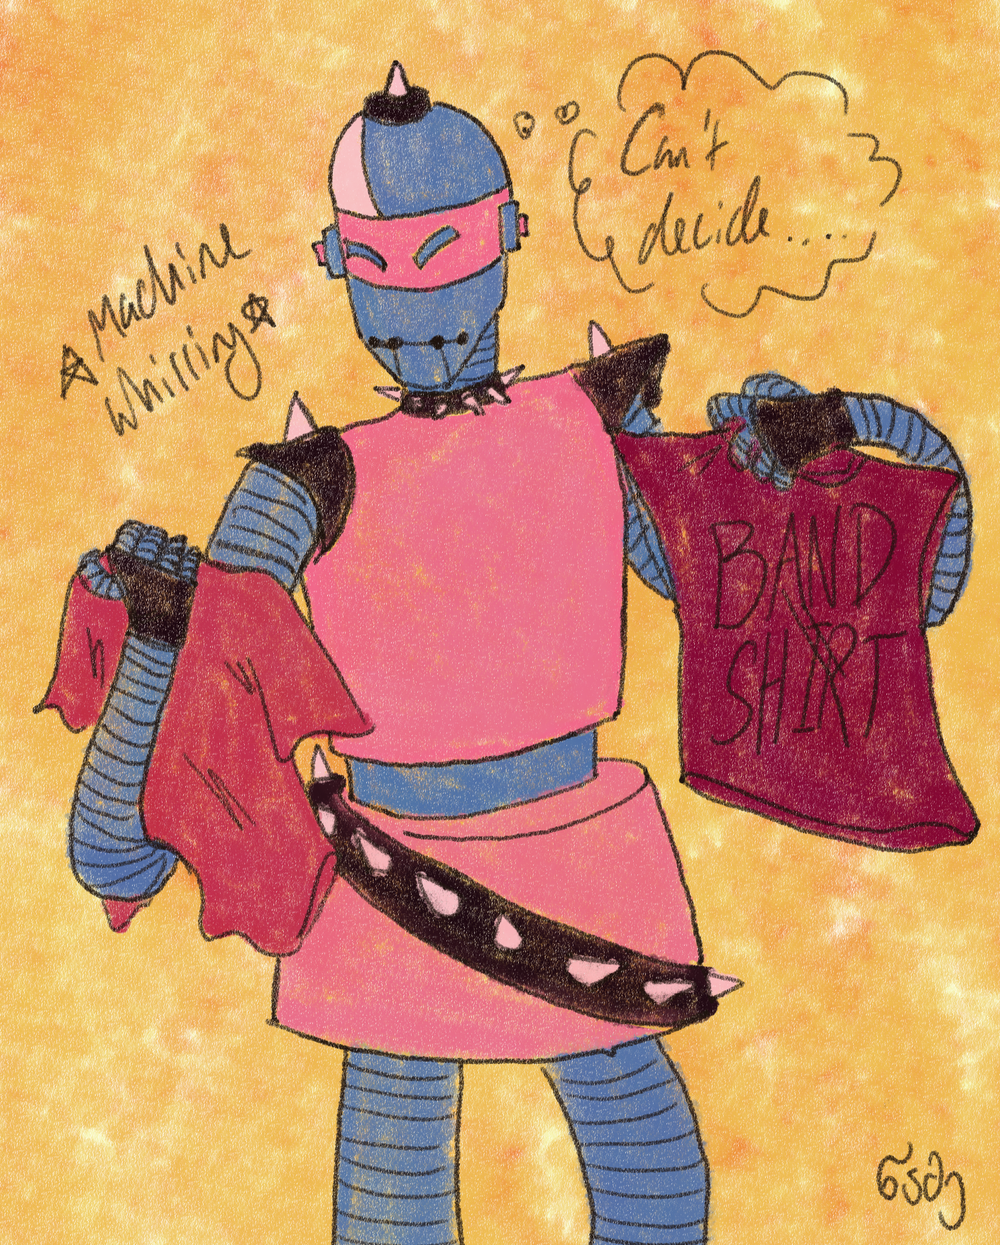 Can't
decide....
Machine
whirring
BAND
SHIRT